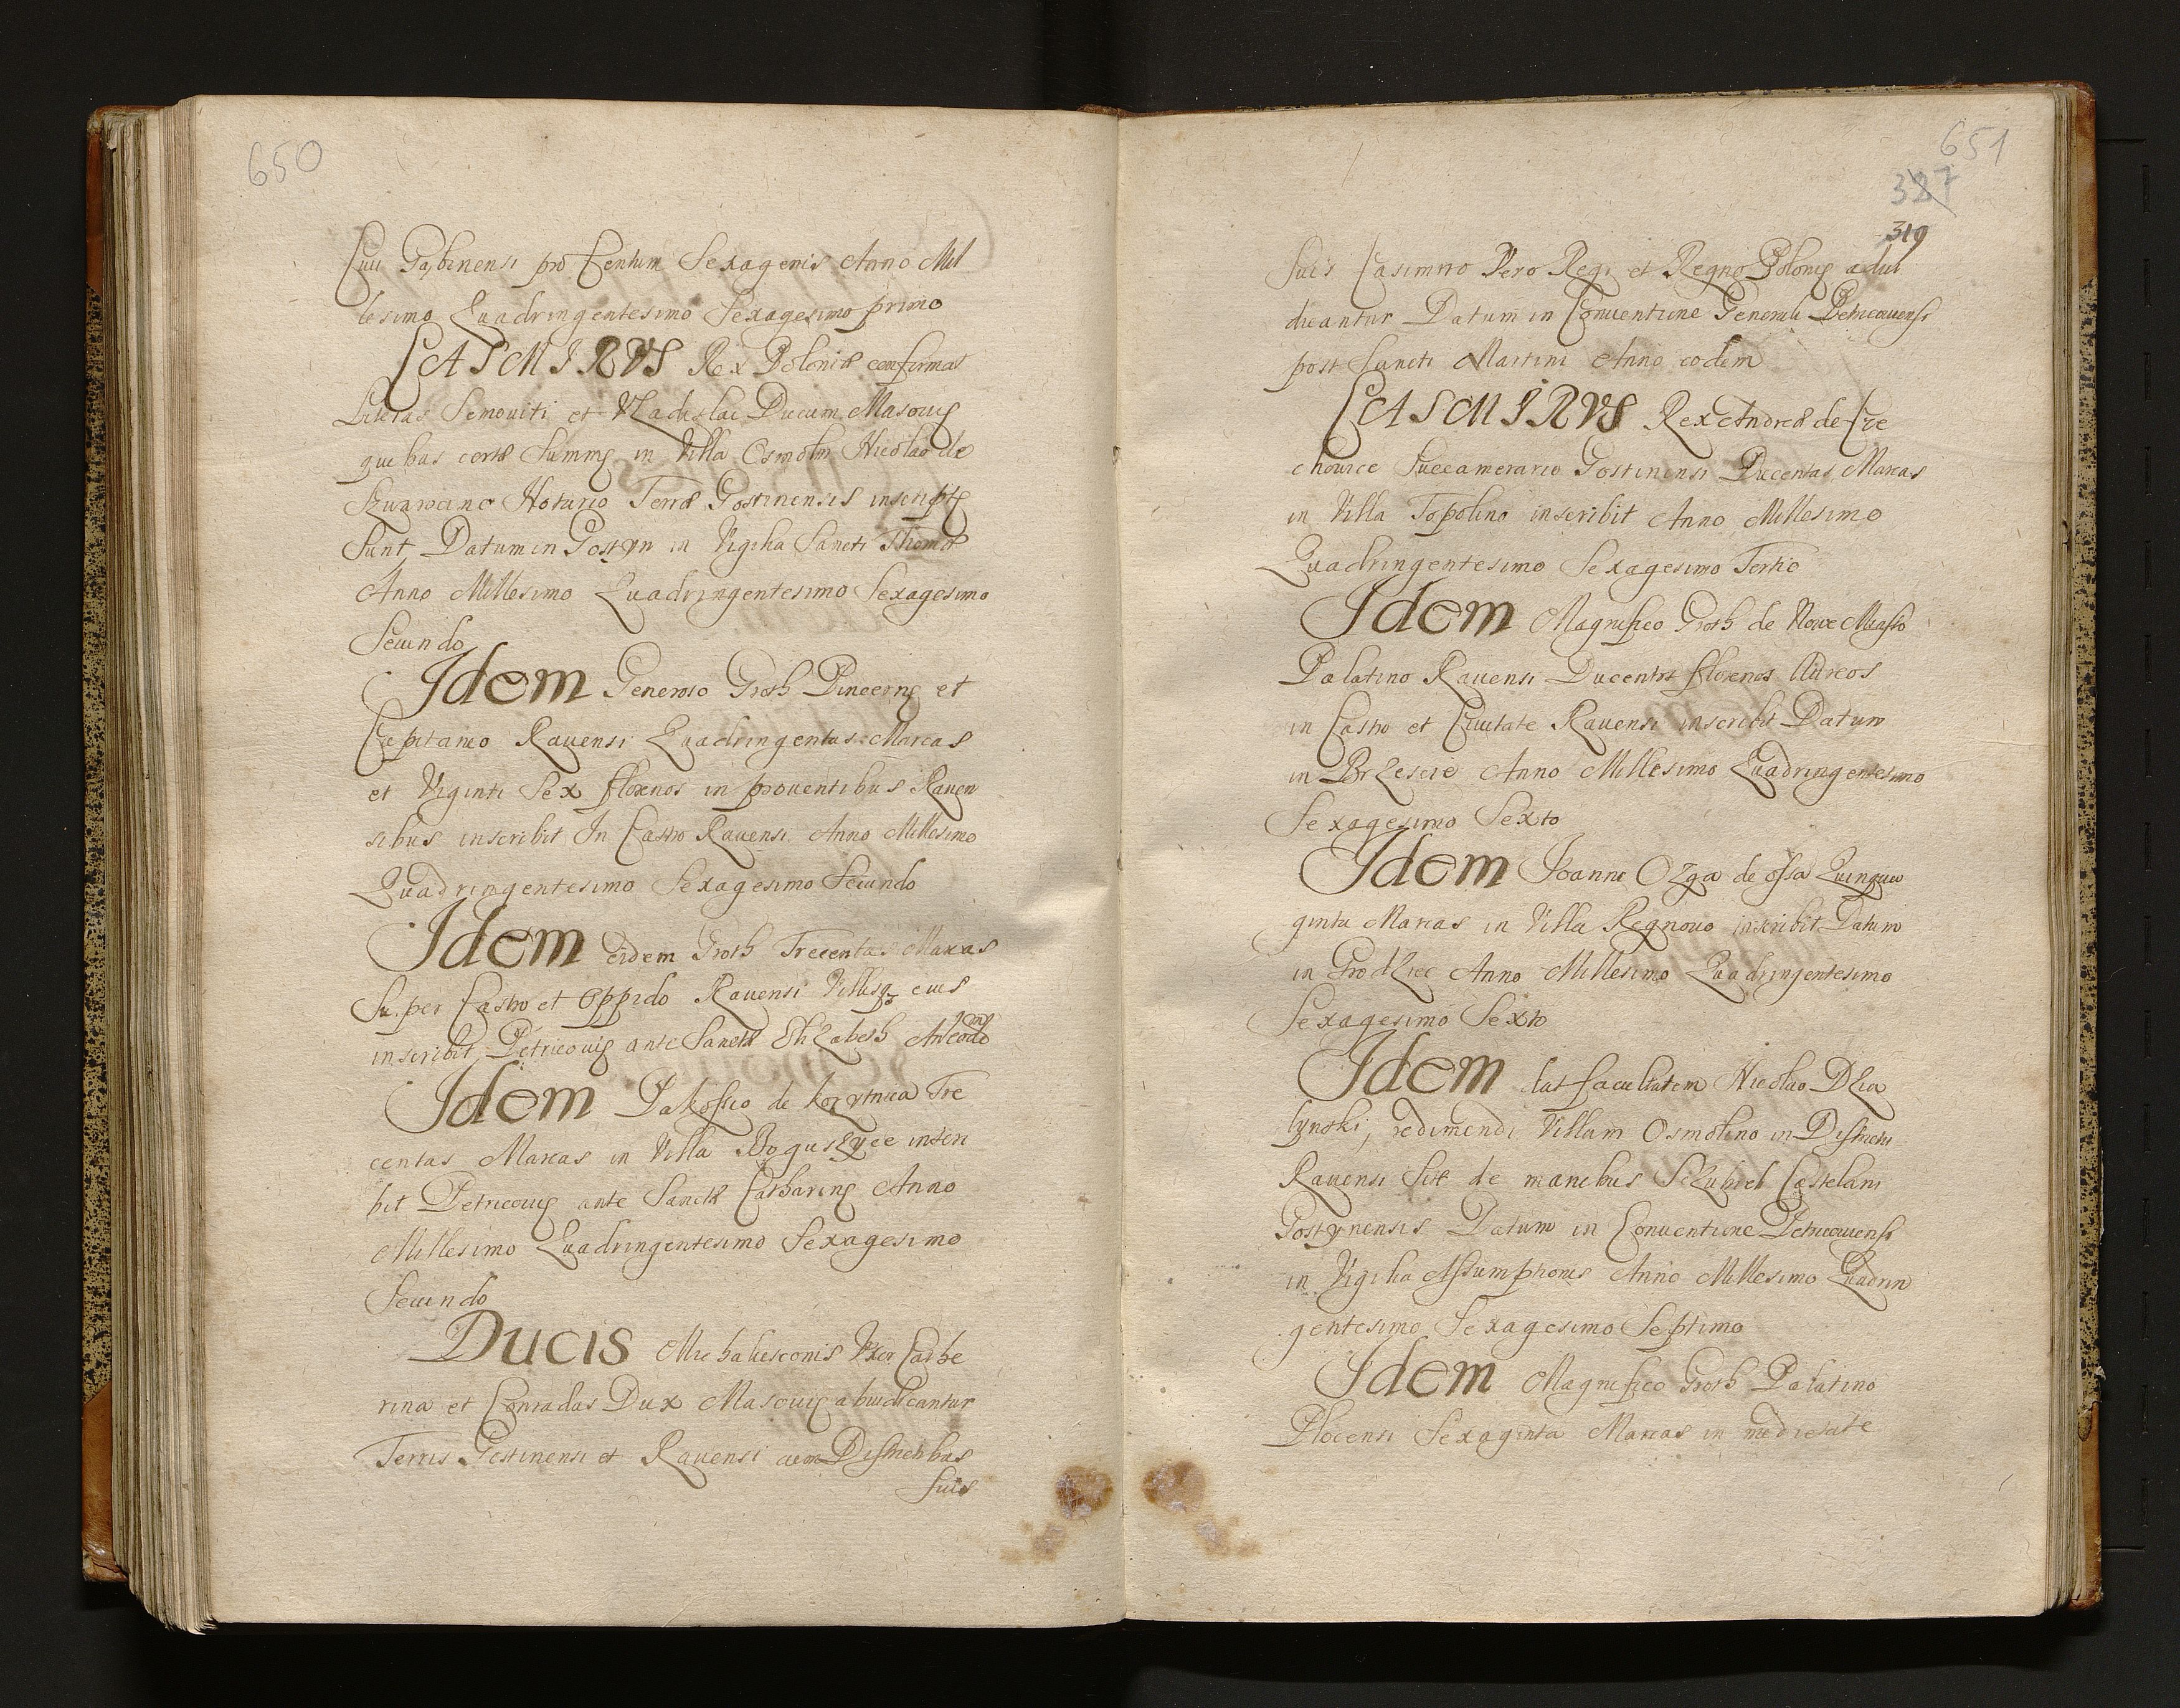 650
Ciui Gąbinensi pro Centum Sexagenis Anno Mil
lesimo Quadringentesimo Sexagesimo primo
CASMIRVS Rex Poloniæ confirmat
Literas Semouiti et Vladislai Ducum Masouię
quibus certæ Summę in Villa Osmolin Nicolao de
Notario Terræ Gostinensis inscriptę
Sunt Datum in Gostyn in Vigilia Sancti Thomæ
Anno Millesimo Quadringentesimo Sexagesimo
Secundo
Idem Generoso Groth Pincernę et
Capitaneo Rauensi Quadringentas Marcas
et Viginti Sex florenos in prouentibus Rauen
sibus inscribit In Castro Rauensi Anno Millesimo
Quadringentesimo Sexagesimo Secundo
Idem eidem Groth Trecentas Marcas
Super Castro et Oppido Rauensi Villisq3 eius
inscribit Petricouię ante Sanctæ Elizabeth An eodē
Idem Jakossio de Tre
centas Marcas in Villa Boguszyce inscri
bit Petricouię ante Sanctæ Catharinę Anno
Millesimo Quadringentesimo Sexagesimo
Secundo
Ducis Michaliesconis Vxor Cathe
rina et Conradus Dux Masouię abiudicantur
Terris Gostinensi et Rauensi cum Districtibus
suis
651
327
319
Suis Casimiro Vero Regi et Regno Polonię adiu
dicantur Datum in Conuentione Generali Petricouiensi
post Sancti Martini Anno eodem
CASMIRVS Rex Andreæ de Cze
chowice Succamerario Gostinensi Ducentas Marcas
in Villa Topolino inscribit Anno Millesimo
Quadringentesimo Sexagesimo Tertio
Idem Magnifico Groth de Nowe Miasto
Palatino Rauensi Ducentos florenos Aureos
in Castro et Ciuitate Rauensi inscribit Datum
in Brzescie Anno Millesimo Quadringentesimo
Sexagesimo Sexto
Idem Joanni Ozga de Ossa Quinqua
ginta Marcas in Villa Regnouo inscribit Datum
in Grodziec Anno Millesimo Quadringentesimo
Sexagesimo Sexto
Idem dat facultatem Nicolao Dzia
lynski, redimendi Villam Osmolino in Districtu
Rauensi Sitæ de manibus Castelani
Gostynensis Datum in Conuentione Petricouiensi
in Vigilia Assumptionis Anno Millesimo Quadrin
gentesimo Sexagesimo Septimo
Idem Magnifico Groth Palatino
Plocensi Sexaginta Marcas in medietate